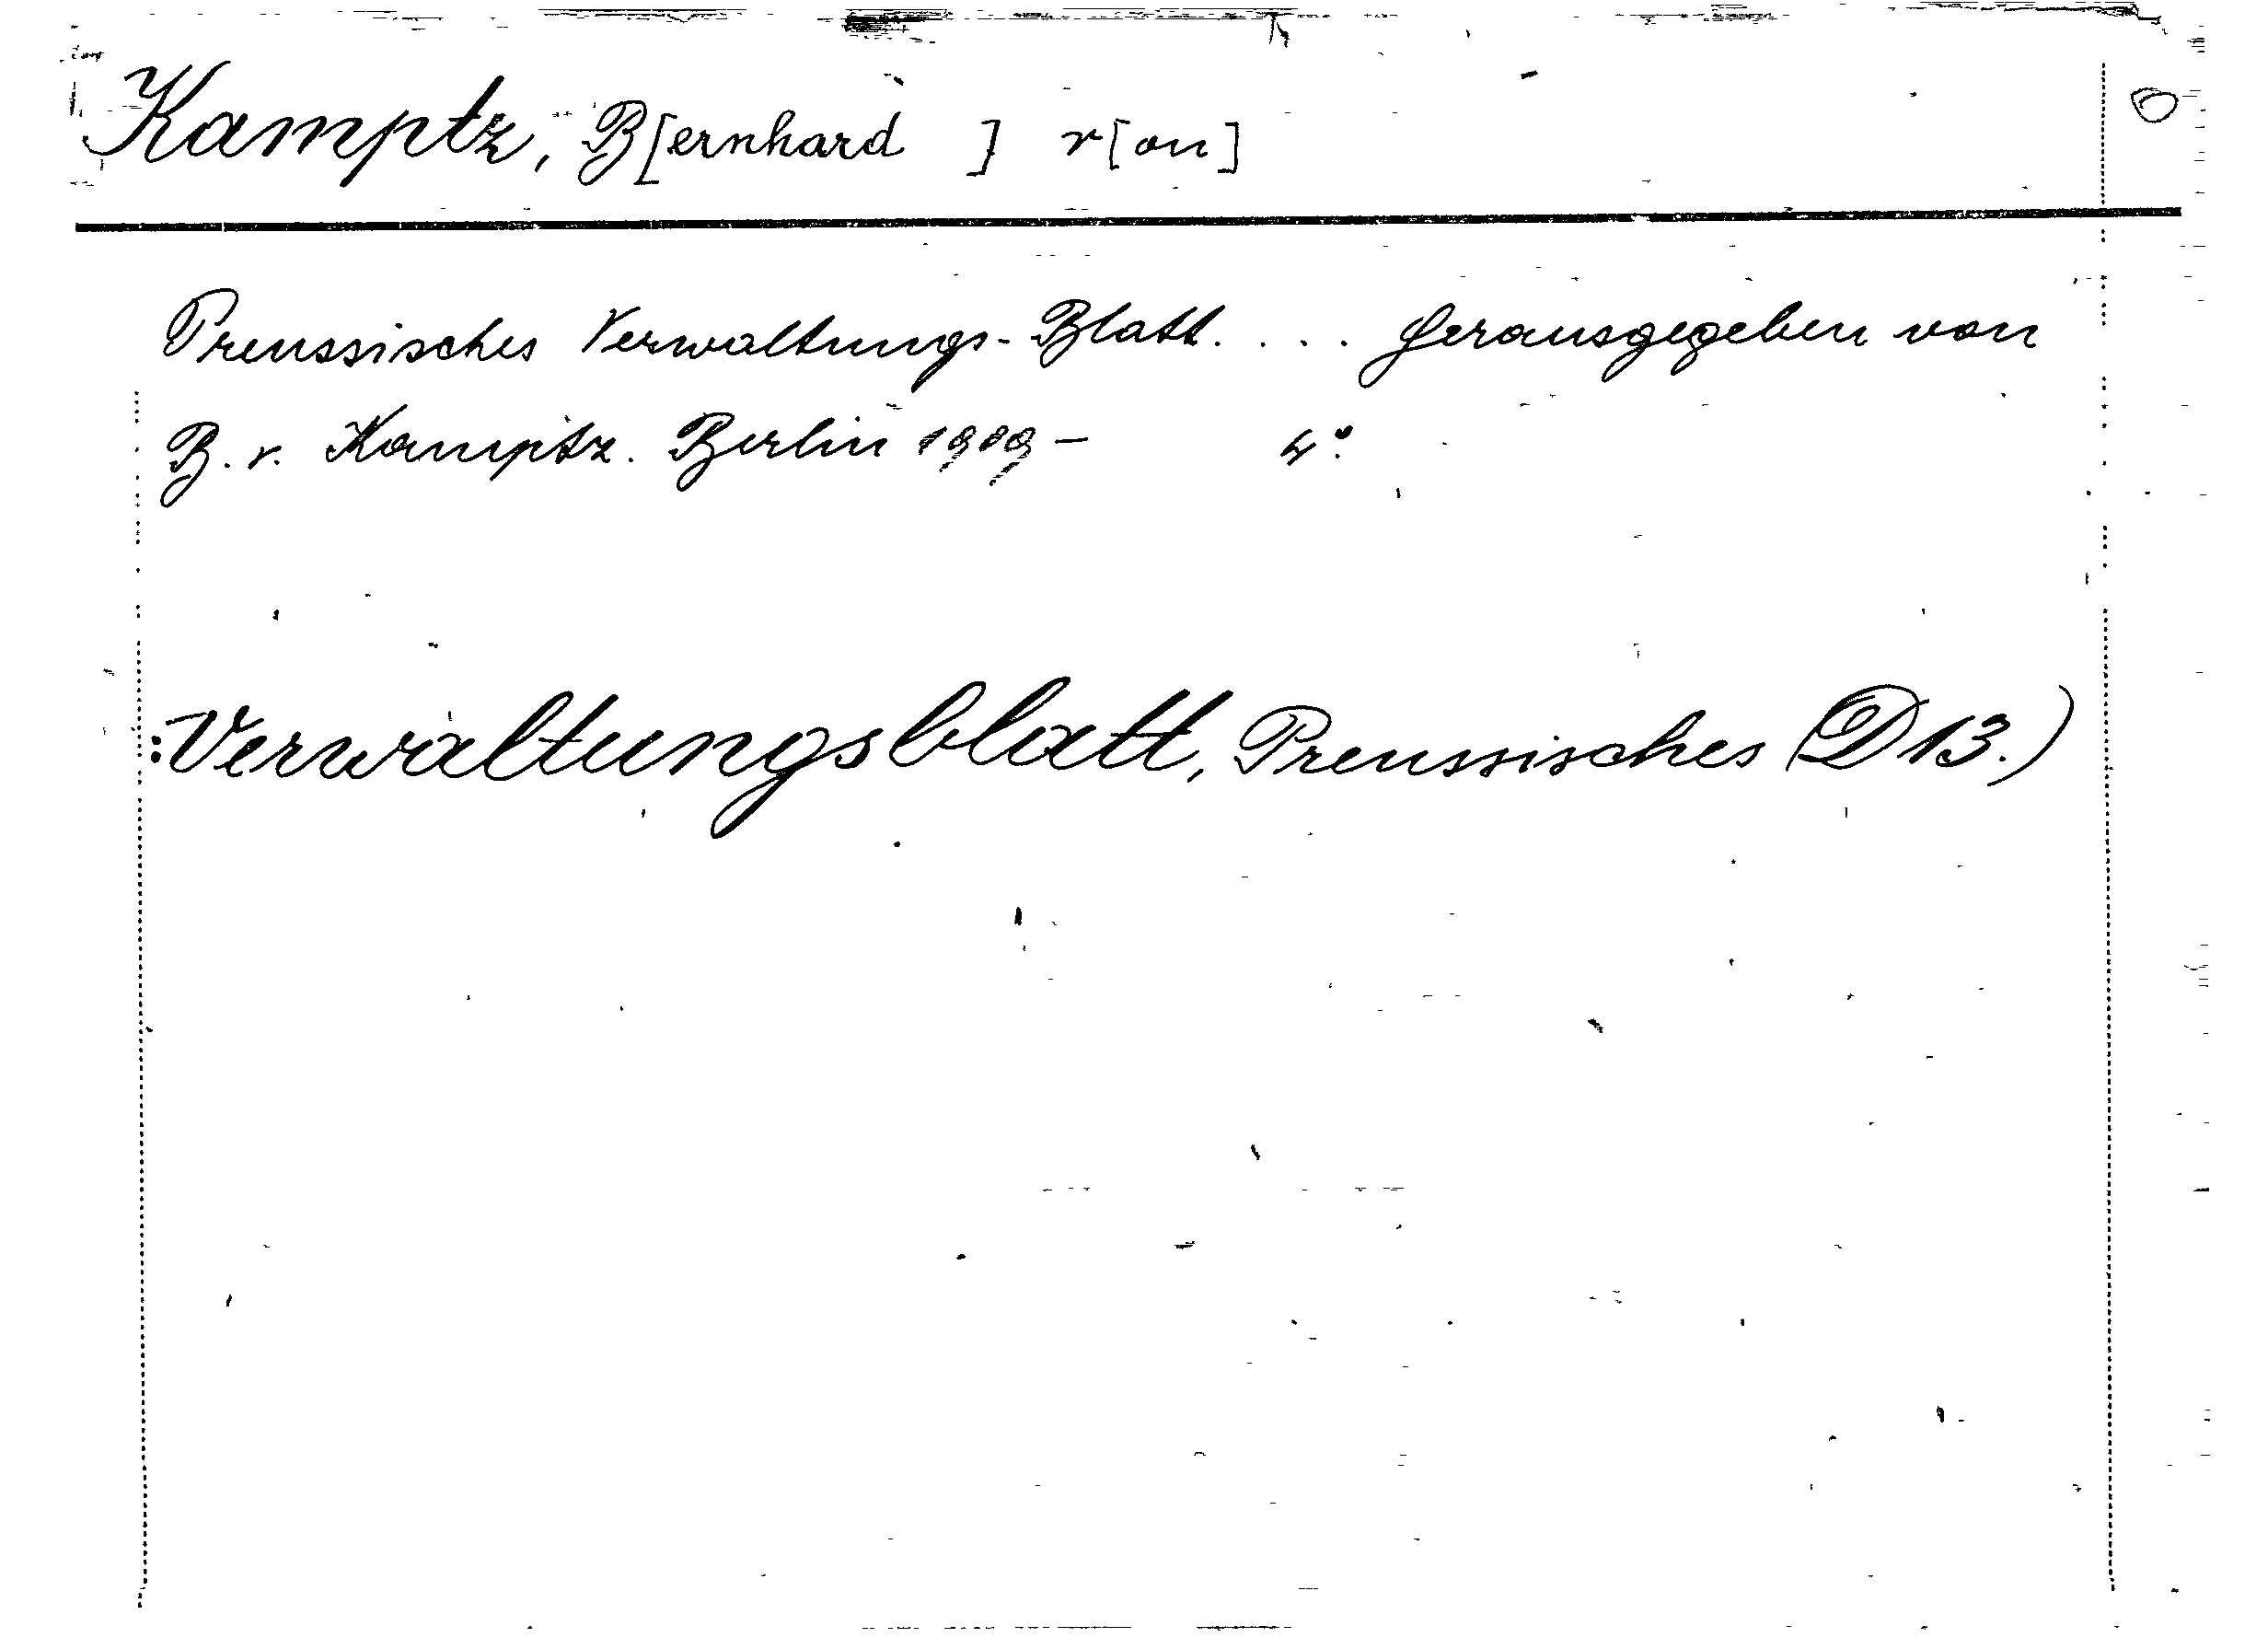 Kamptz, B[ernhard ] v[on]
Preussisches Verwaltungs-Blatt. . . . Herausgegeben von
B. v. Kamptz. Berlin 1909 — 4°.
:Verwaltungsblatt, Preussisches (D13.)